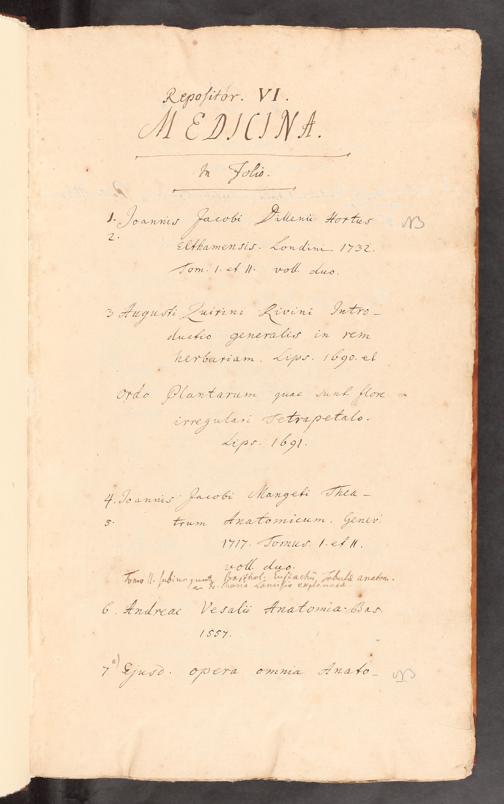 Repositor. VI.
MEDICINA.
In Folio.
1. Joannis Jacobi Dillenii Hortus NB
2. Elthamensis. Londini 1732.
Tom. I. et II. voll. duo.
3 Augusti Quirini Rivini Intro-
ductio generalis in rem
herbariam. Lips. 1690. et
Ordo Plantarum quae sunt flore
irregulari Tetrapetalo.
Lips. 1691.
4. Joannis Jacobi Mangeti Thea-
5. trum Anatomicum. Genev.
1717. Tomus I. et II.
voll. duo.
Tomo II. subiunguntur Barthol. Eustachii, Tabulae anatom.
a Jo. Maria Lancisio explanatae
6. Andreae Vesalii Anatomia. Bas.
1557.
7 a) Ejusd. opera omnia Anato- NB